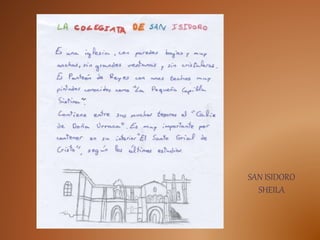 LA COLEGIATA DE SAN ISIDORO
Es una iglesia, con paredes bajas y muy
anchas, sin grandes ventanas y sin cristaleras.
El Panteón de Reyes con unos techos muy
pintados conocidos como "La Pequeña Capilla
Sixtina".
Contiene entre sus muchos tesoros el "Caliz
de Doña Urraca". Es muy importante por
contener en su interior "El Santo Grial de
Cristo", según los últimos estudios.
SAN ISIDORO
SHEILA